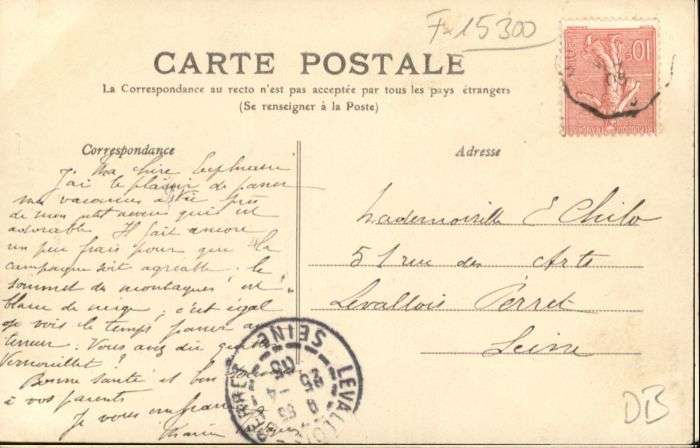 Fx 15300
CARTE POSTALE
La Correspondance au recto n'est pas acceptée par tous les pays étrangers
(Se renseigner à la Poste)
Correspondance
Adresse
Ma chère
J'ai le plaisir de passer
mes vacances à près
de mon petit neveu qui est
adorable. Il fait encore
un peu frais pour que la
campagne soit agréable. le
sommet des montagnes est
blanc de neige, c'est égal
je vois le temps passer avec
terreur. Vous avez dit
Vernouillet?
Bonne santé et bon
à vos parents
Je vous
Mademoiselle E Chilo
51 rue des Arts
Levallois Perret
Seine
10
LEVALLOIS PERRET
SEINE
DB